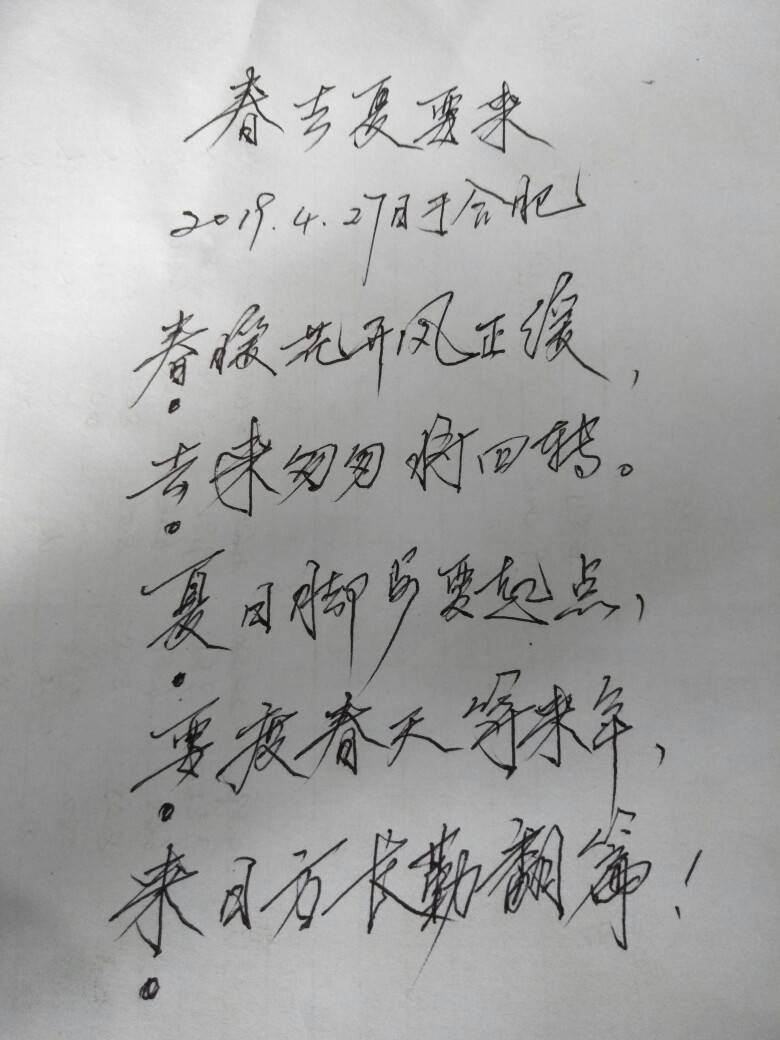 春去夏要来
2019.4.27日于合肥
春暖花开风正缓,
去来匆匆将回转。
夏日脚步要起点,
要度春天等来年,
来日方长勤翻篇!